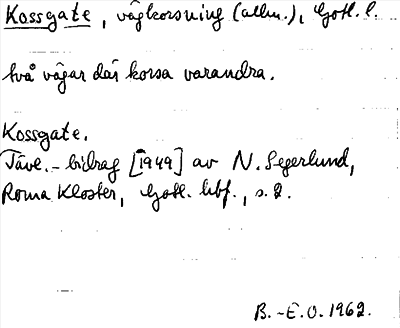 Kossgate, vägkorsning (allm.), Gotl. l.
två vägar där korsa varandra.
Kossgate.
Täve.-bidrag [1949] av N. Segerlund,
Roma Kloster, Gotl. hbf., s. 2.
B.-E.O. 1962.